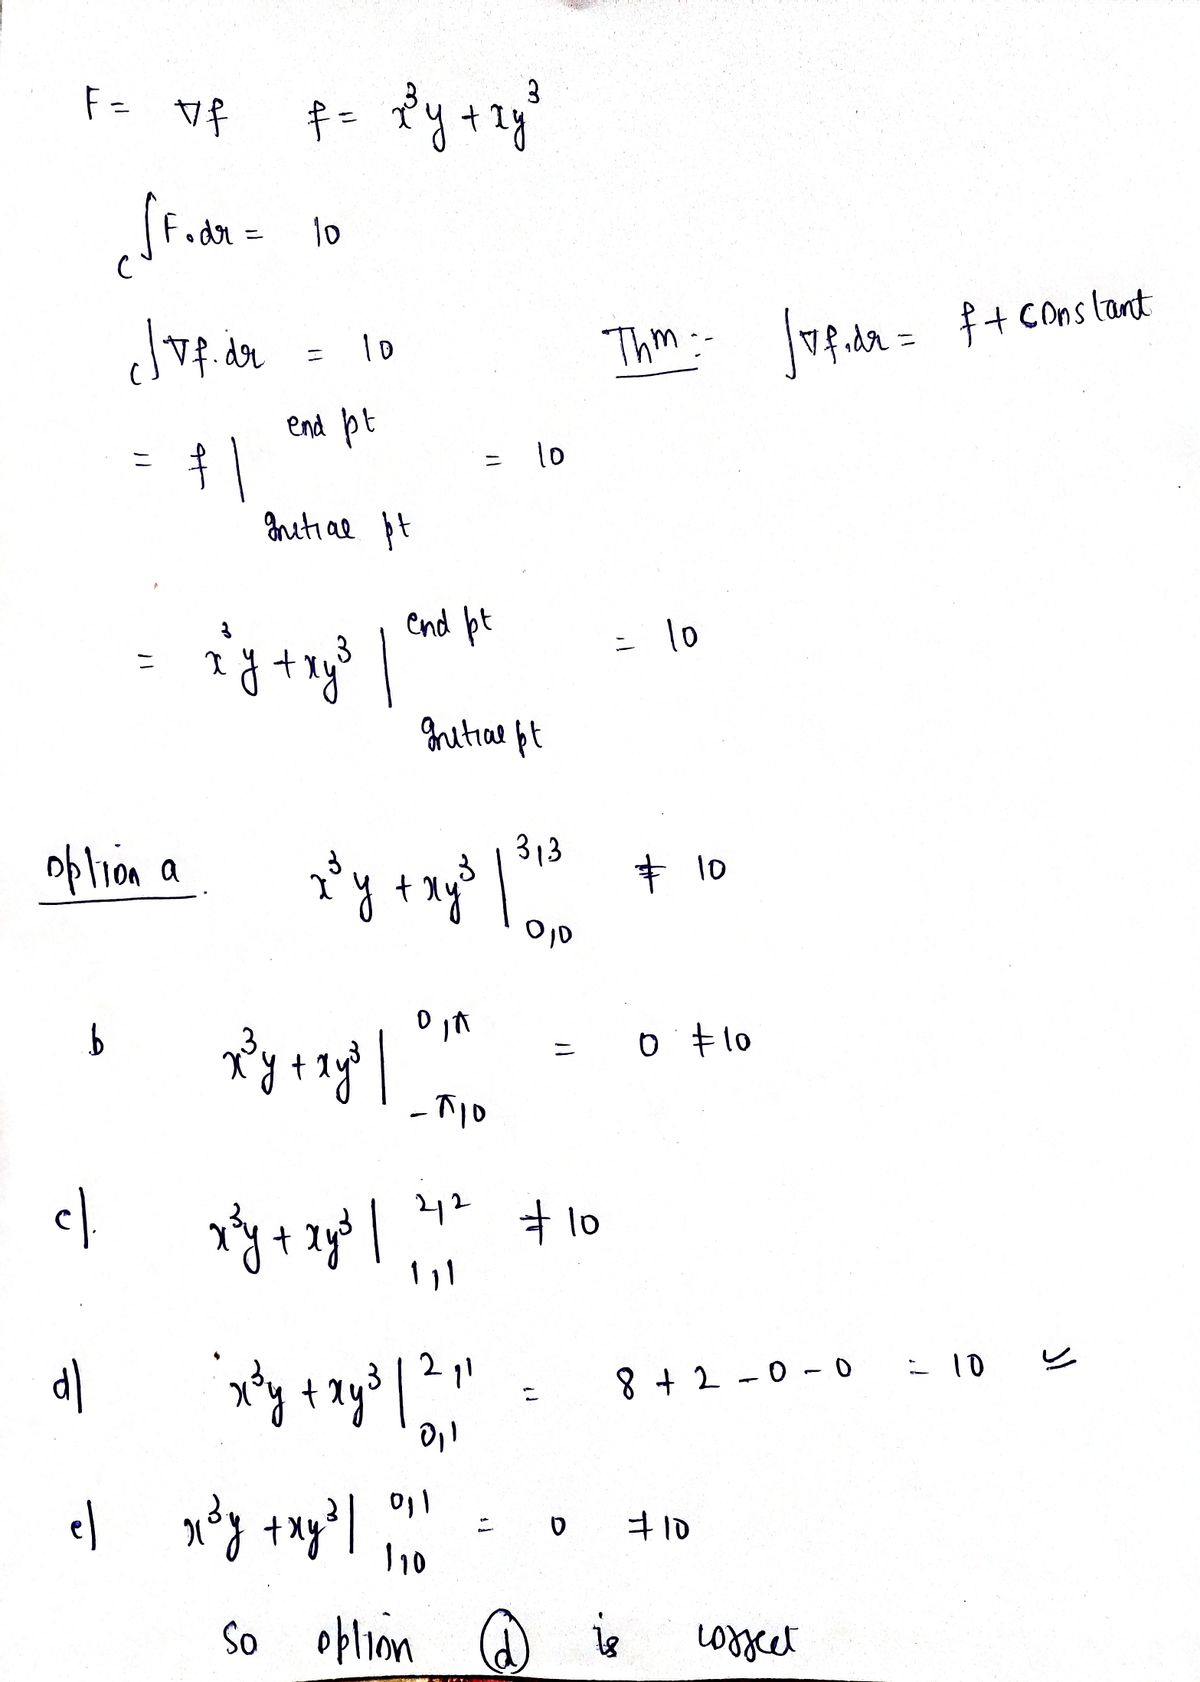 F = ∇f f = x³y + xy³
C∫F.dr = 10
C∫∇f.dr = 10 Thm :- ∫∇f.dr = f + constant
= f | end pt Initial pt = 10
= x³y + xy³ | end pt Initial pt = 10
option a. x³y + xy³ | 3,3 0,0 ≠ 10
b x³y + xy³ | 0,π -π,0 = 0 ≠ 10
c). x³y + xy³ | 2,2 1,1 ≠ 10
d) x³y + xy³ | 2,1 0,1 = 8 + 2 - 0 - 0 = 10
e) x³y + xy³ | 0,1 1,0 = 0 ≠ 10
So option d is correct